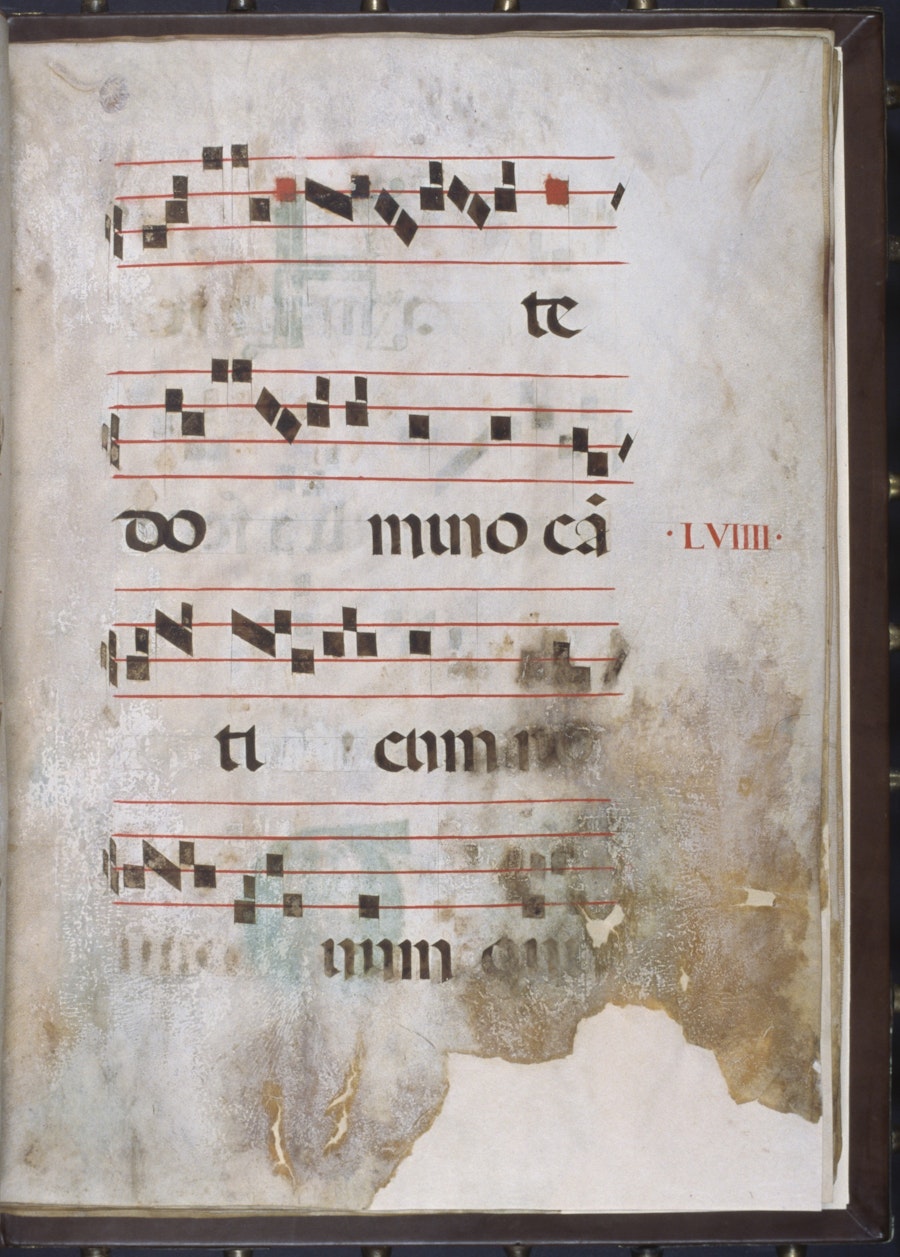 te
do mino câ
· LVIIII ·
ti cum no
uum